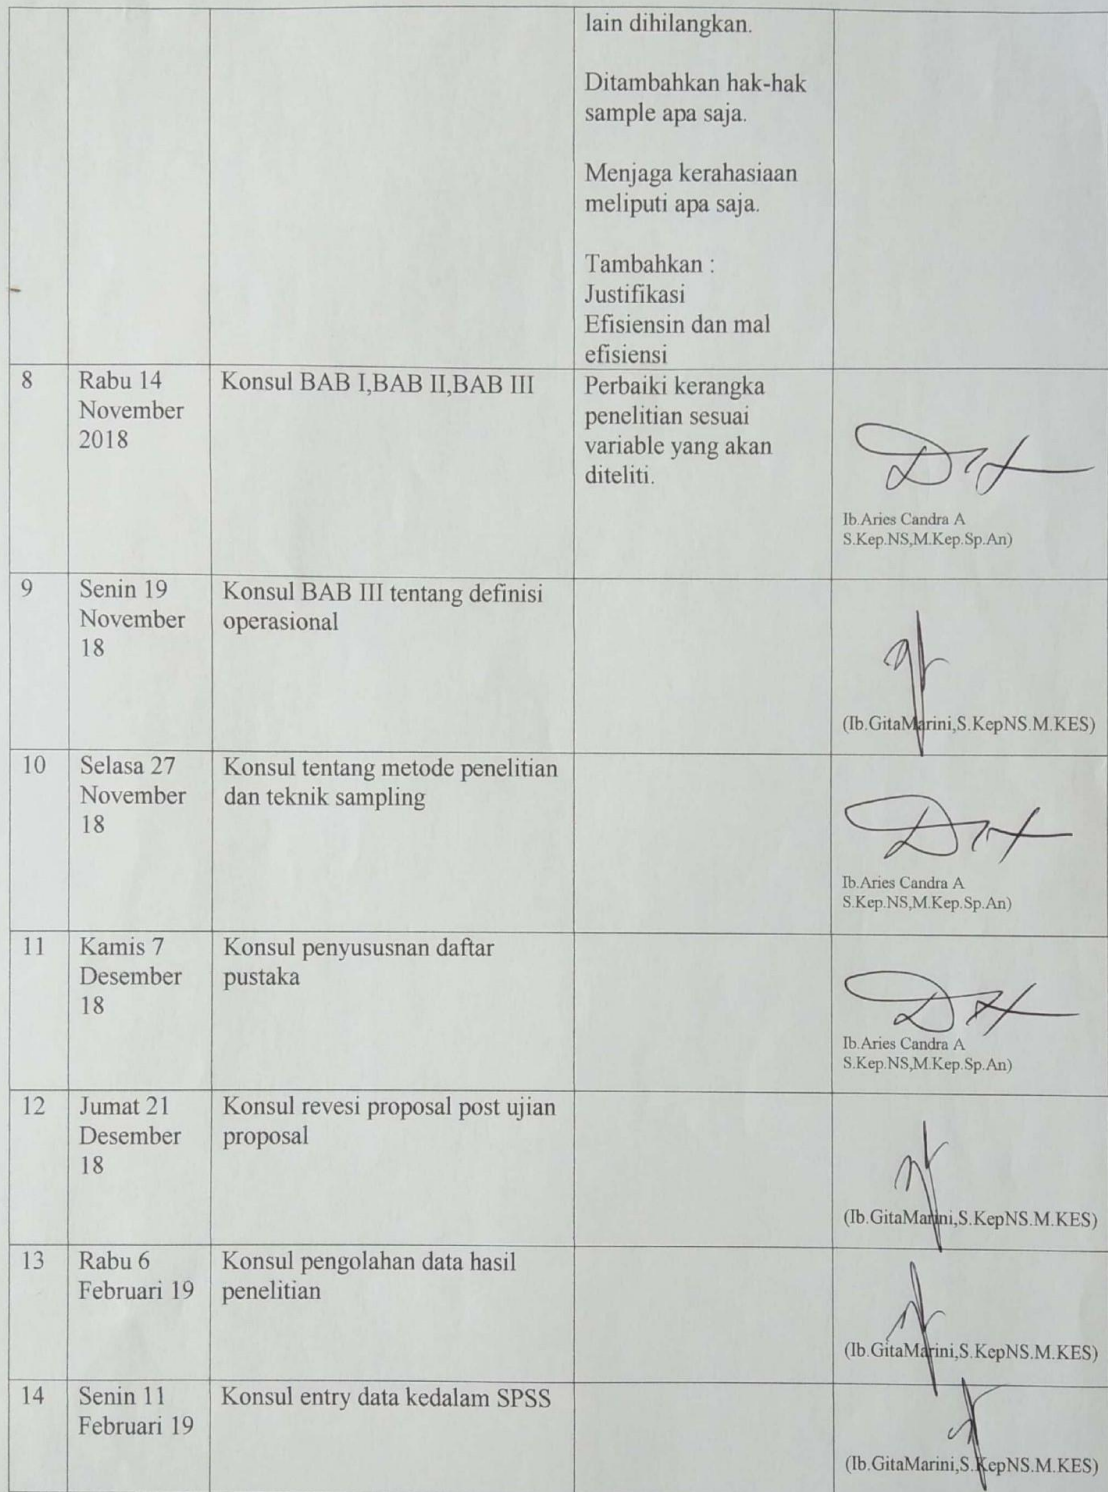 lain dihilangkan.
Ditambahkan hak-hak
sample apa saja.
Menjaga kerahasiaan
meliputi apa saja.
Tambahkan :
Justifikasi
Efisiensin dan mal
efisiensi
8
Rabu 14
November
2018
Konsul BAB I,BAB II,BAB III
Perbaiki kerangka
penelitian sesuai
variable yang akan
diteliti.
Ib.Aries Candra A
S.Kep.NS,M.Kep.Sp.An)
9
Senin 19
November
18
Konsul BAB III tentang definisi
operasional
(Ib.GitaMarini,S.KepNS.M.KES)
10
Selasa 27
November
18
Konsul tentang metode penelitian
dan teknik sampling
Ib.Aries Candra A
S.Kep.NS,M.Kep.Sp.An)
11
Kamis 7
Desember
18
Konsul penyususnan daftar
pustaka
Ib.Aries Candra A
S.Kep.NS,M.Kep.Sp.An)
12
Jumat 21
Desember
18
Konsul revesi proposal post ujian
proposal
(Ib.GitaMarini,S.KepNS.M.KES)
13
Rabu 6
Februari 19
Konsul pengolahan data hasil
penelitian
(Ib.GitaMarini,S.KepNS.M.KES)
14
Senin 11
Februari 19
Konsul entry data kedalam SPSS
(Ib.GitaMarini,S.KepNS.M.KES)